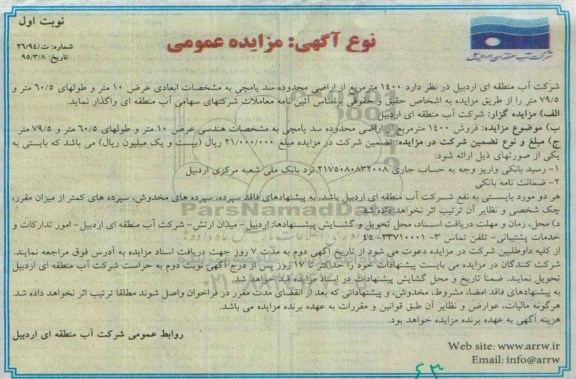 نوبت اول
نوع آگهی: مزایده عمومی
شماره: ت/۲۶/۹۴
تاریخ: ۹۵/۳/۸
شرکت آب منطقه ای اردبیل در نظر دارد ۱۴۰۰ مترمربع از اراضی محدوده سد یامچی به مشخصات ابعادی عرض ۱۰ متر و طولهای ۶۰/۵ متر و
۷۹/۵ متر را از طریق مزایده به اشخاص حقیقی و حقوقی براساس آئین نامه معاملات شرکتهای سهامی آب منطقه ای واگذار نماید.
الف) مزایده گزار: شرکت آب منطقه ای اردبیل
ب) موضوع مزایده: فروش ۱۴۰۰ مترمربع از اراضی محدوده سد یامچی به مشخصات هندسی عرض ۱۰ متر و طولهای ۶۰/۵ متر و ۷۹/۵ متر
ج) مبلغ و نوع تضمین شرکت در مزایده: تضمین شرکت در مزایده مبلغ ۲۱/۰۰۰/۰۰۰ ریال (بیست و یک میلیون ریال) می باشد که بایستی به
یکی از صورتهای ذیل ارائه شود:
۱- رسید بانکی واریز وجه به حساب جاری ۲۱۷۵۰۸۰۸۳۲۰۰۸ نزد بانک ملی شعبه مرکزی اردبیل
۲- ضمانت نامه بانکی
هر دو مورد بایستی به نفع شرکت آب منطقه ای اردبیل باشد، به پیشنهادهای فاقد سپرده، سپرده های مخدوش، سپرده های کمتر از میزان مقرر،
چک شخصی و نظایر آن ترتیب اثر نخواهد داد.
د) محل، زمان و مهلت دریافت اسناد، محل تحویل و گشایش پیشنهادها: اردبیل- میدان ارتش- شرکت آب منطقه ای اردبیل- امور تدارکات و
خدمات پشتیبانی- تلفن تماس ۳-۳۳۷۱۰۰۰۱-۰۴۵
از کلیه داوطلبین شرکت در مزایده دعوت می شود از تاریخ آگهی دوم به مدت ۷ روز جهت دریافت اسناد مزایده به آدرس فوق مراجعه نمایند.
شرکت کنندگان در مزایده می بایست پیشنهادات خود را حداکثر تا ۱۷ روز پس از درج آگهی نوبت دوم به حراست شرکت آب منطقه ای اردبیل
تحویل نمایند. ضمنا تاریخ و محل گشایش پیشنهادات در اسناد قید خواهد شد.
به پیشنهادهای فاقد امضا، مشروط، مخدوش، و پیشنهاداتی که بعد از انقضای مدت مقرر در فراخوان واصل شوند مطلقا ترتیب اثر نخواهد داده شد.
هرگونه مالیات، عوارض و نظایر آن طبق قوانین و مقررات به عهده برنده مزایده می باشد.
هزینه آگهی به عهده برنده مزایده خواهد بود.
روابط عمومی شرکت آب منطقه ای اردبیل
Web site: www.arrw.ir
Email: info@arrw
۶۳